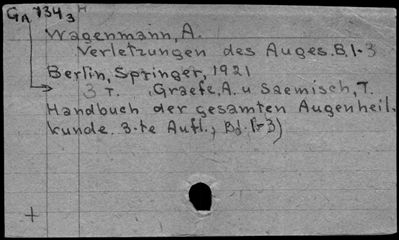 GA 734 3
Wagenmann, A.
Verletzungen des Auges. B. 1-3
Berlin, Springer, 1921
3 T. Graefe, A. u Saemisch, T.
Handbuch der gesamten Augenheil.
kunde. 3-te Aufl., Bd. 1-3)